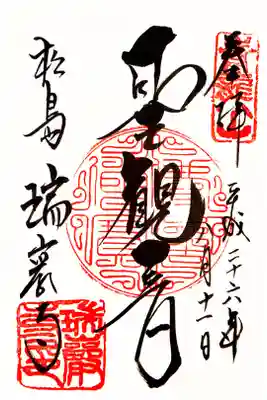 奉拝
平成二十六年
月十一日
聖観音
松島 瑞巖寺